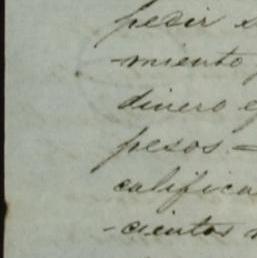 pedir
-miento
dinero
pesos =
califica
-cientos